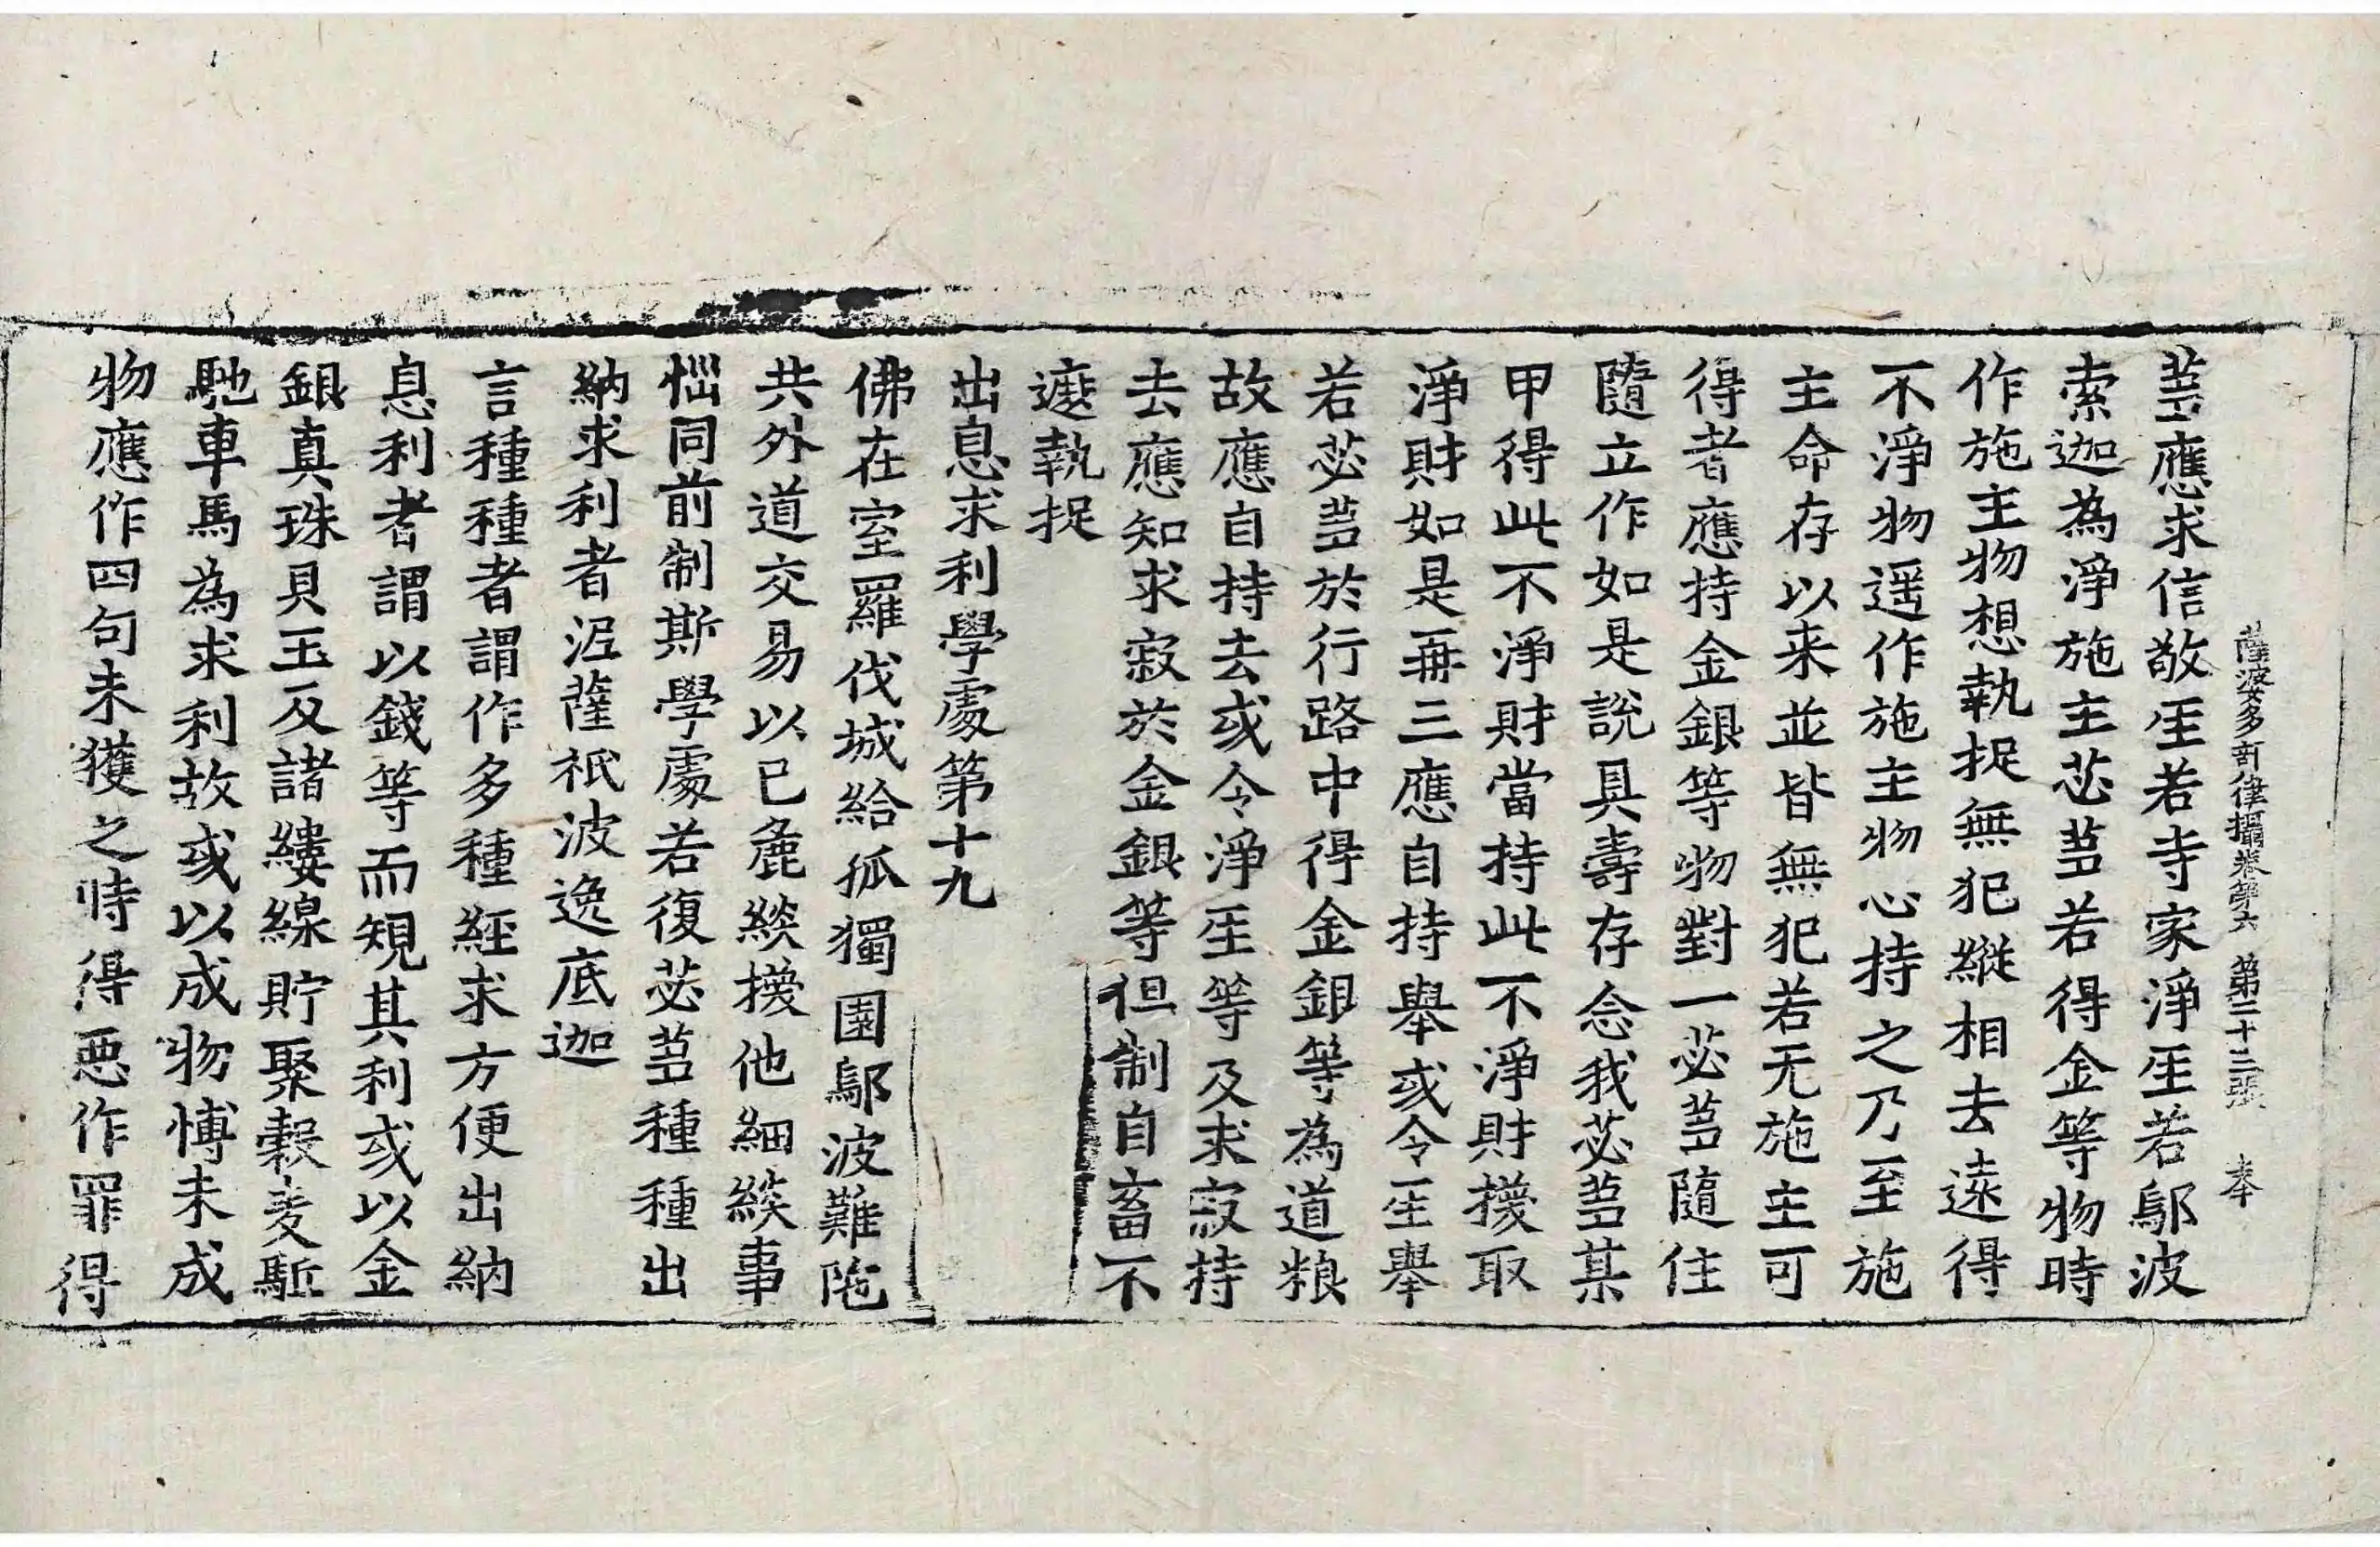 薩婆多部律攝卷第六 第二十三張 奉
蒭應求信敬𤯔若寺家淨𤯔若鄔波
索迦為淨施主苾蒭若得金等物時
作施主物想執捉無犯縱相去遠得
不淨物遥作施主物心持之乃至施
主命存以来並皆無犯若无施主可
得者應持金銀等物對一苾蒭隨住
隨立作如是說具壽存念我苾蒭某
甲得此不淨財當持此不淨財換取
淨財如是再三應自持舉或令𤯔舉
若苾蒭於行路中得金銀等為道粮
故應自持去或令淨𤯔等及求寂持
去應知求寂於金銀等但制自畜不
遮執捉
出息求利學處第十九
佛在室羅伐城給孤獨園鄔波難陁
共外道交易以已麁緂換他細緂事
惱同前制斯學處若復苾蒭種種出
納求利者泥薩祇波逸底迦
言種種者謂作多種經求方便出納
息利者謂以錢等而規其利或以金
銀真珠貝玉及諸縷線貯聚穀麦駈
馳車馬為求利故或以成物愽未成
物應作四句未獲之時得惡作罪得